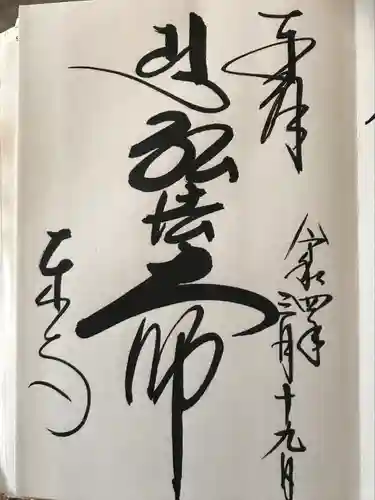 奉拝
令和四年
三月十九日
弘法大師
東寺